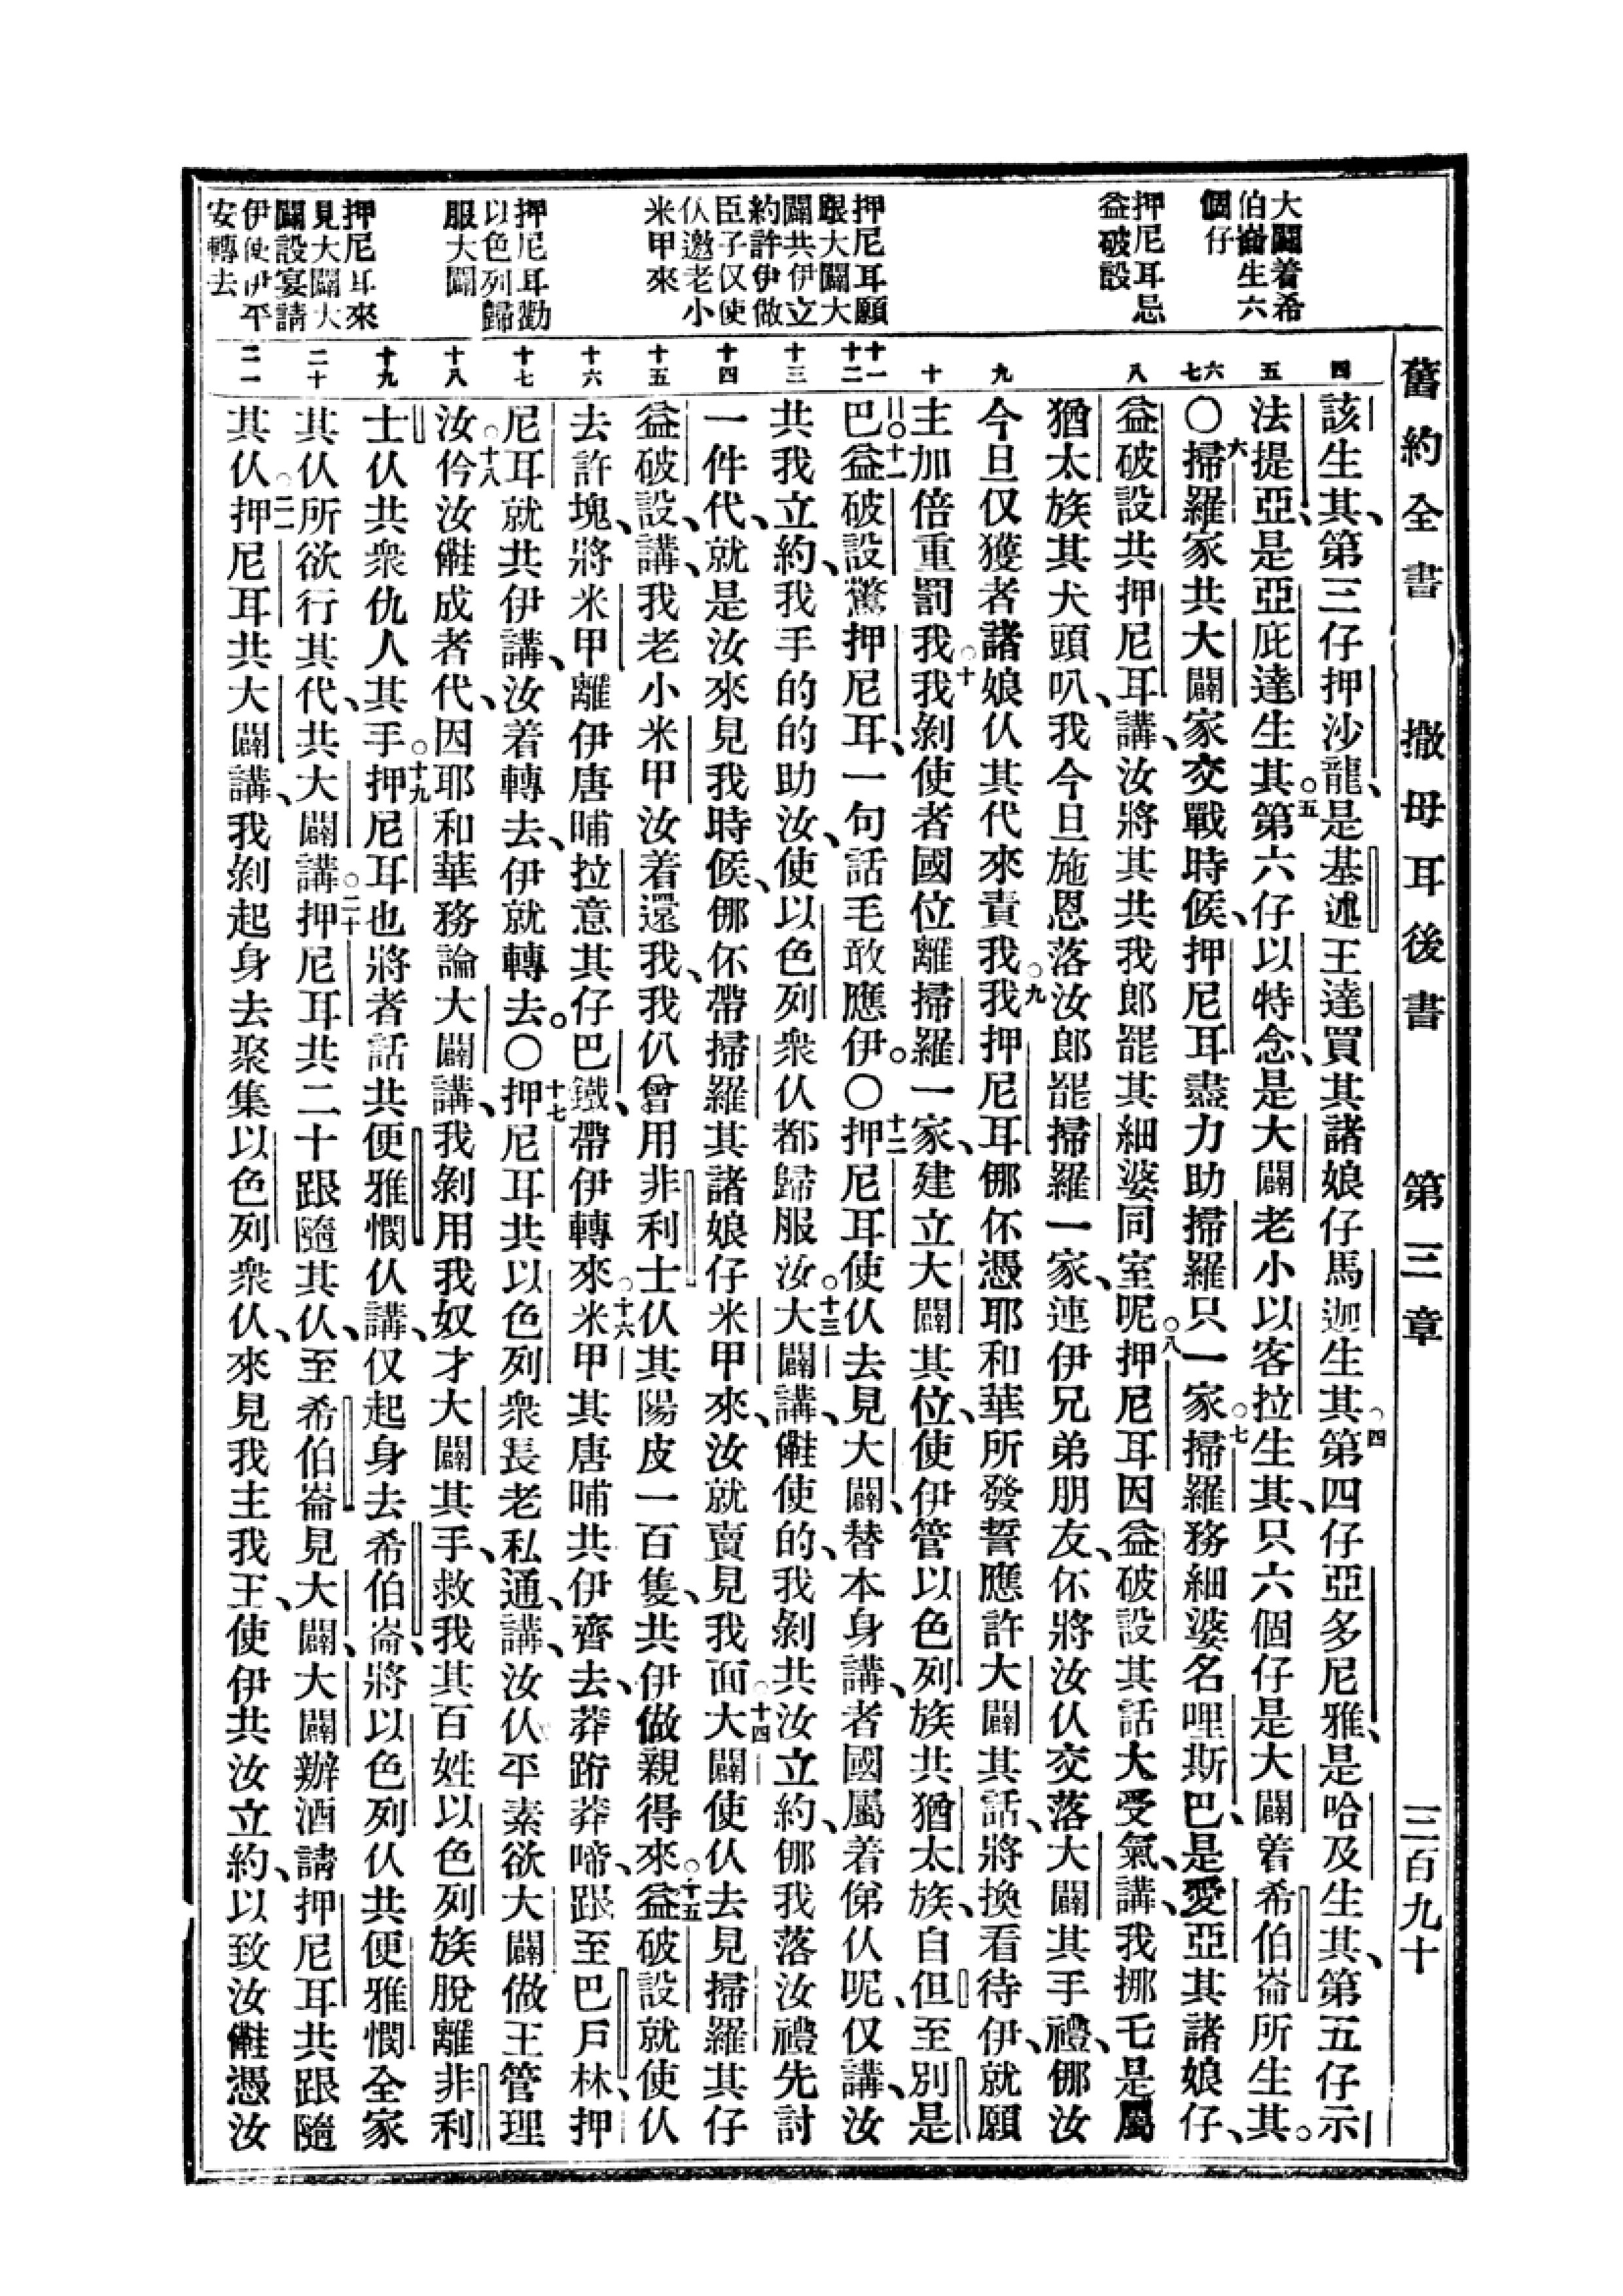 舊約全書　撒母耳後書　第三章　三百九十
大闢着希
伯崙生六
個仔
押尼耳忌
益破設
押尼耳願
跟大闢大
闢共伊立
約許伊做
臣子仅使
仈邀老小
米甲來
押尼耳勸
以色列歸
服大闢
押尼耳來
見大闢大
闢設宴請
伊使伊平
安轉去
四
五
六
七
八
九
十
十一
十二
十三
十四
十五
十六
十七
十八
十九
二十
二一
該生其、第三仔押沙龍、是基述王達買其諸娘仔馬迦生其○四第四仔亞多尼雅、是哈及生其、第五仔示
法提亞、是亞庇達生其○五第六仔以特念、是大闢老小以客拉生其、只六個仔是大闢着希伯崙所生其。
○六掃羅家共大闢家交戰時候、押尼耳盡力助掃羅只一家○七掃羅務細婆名哩斯巴、是愛亞其諸娘仔、
益破設共押尼耳講、汝將其共我郎罷其細婆同室呢○八押尼耳因益破設其話大受氣、講、我挪乇是屬
猶太族其犬頭叭、我今旦施恩落汝郎罷掃羅一家、連伊兄弟朋友、伓將汝仈交落大闢其手禮、㑚汝
今旦仅獲者諸娘仈其代來責我○九我押尼耳㑚伓憑耶和華所發誓應許大闢其話、將換看待伊、就願
主加倍重罰我○十我剝使者國位離掃羅一家、建立大闢其位、使伊管以色列族共猶太族、自但至別是
巴○十一益破設驚押尼耳、一句話毛敢應伊。○十二押尼耳使仈去見大闢、替本身講、者國屬着俤仈呢、仅講、汝
共我立約、我手的的助汝、使以色列衆仈都歸服汝○十三大闢講、㒰使的、我剝共汝立約、㑚我落汝禮先討
一件代、就是汝來見我時候、㑚伓帶掃羅其諸娘仔米甲來、汝就賣見我面○十四大闢使仈去見掃羅其仔
益破設、講、我老小米甲汝着還我、我仈曾用非利士仈其陽皮一百隻、共伊做親得來○十五益破設就使仈
去許塊、將米甲離伊唐哺拉意其仔巴鐵、帶伊轉來○十六米甲其唐哺共伊齊去、莽跲莽啼、跟至巴戶林、押
尼耳就共伊講、汝着轉去、伊就轉去。○十七押尼耳共以色列衆長老私通、講、汝仈平素欲大闢做王管理
汝○十八伶汝㒰成者代、因耶和華務論大闢講、我剝用我奴才大闢其手、救我其百姓以色列族脫離非利
士仈共衆仇人其手○十九押尼耳也將者話共便雅憫仈講、仅起身去希伯崙、將以色列仈共便雅憫全家
其仈所欲行其代、共大闢講○二十押尼耳共二十跟隨其仈、至希伯崙見大闢、大闢辦酒請押尼耳共跟隨
其仈○二一押尼耳共大闢講、我剝起身去聚集以色列衆仈、來見我主我王、使伊共汝立約、以致汝㒰憑汝